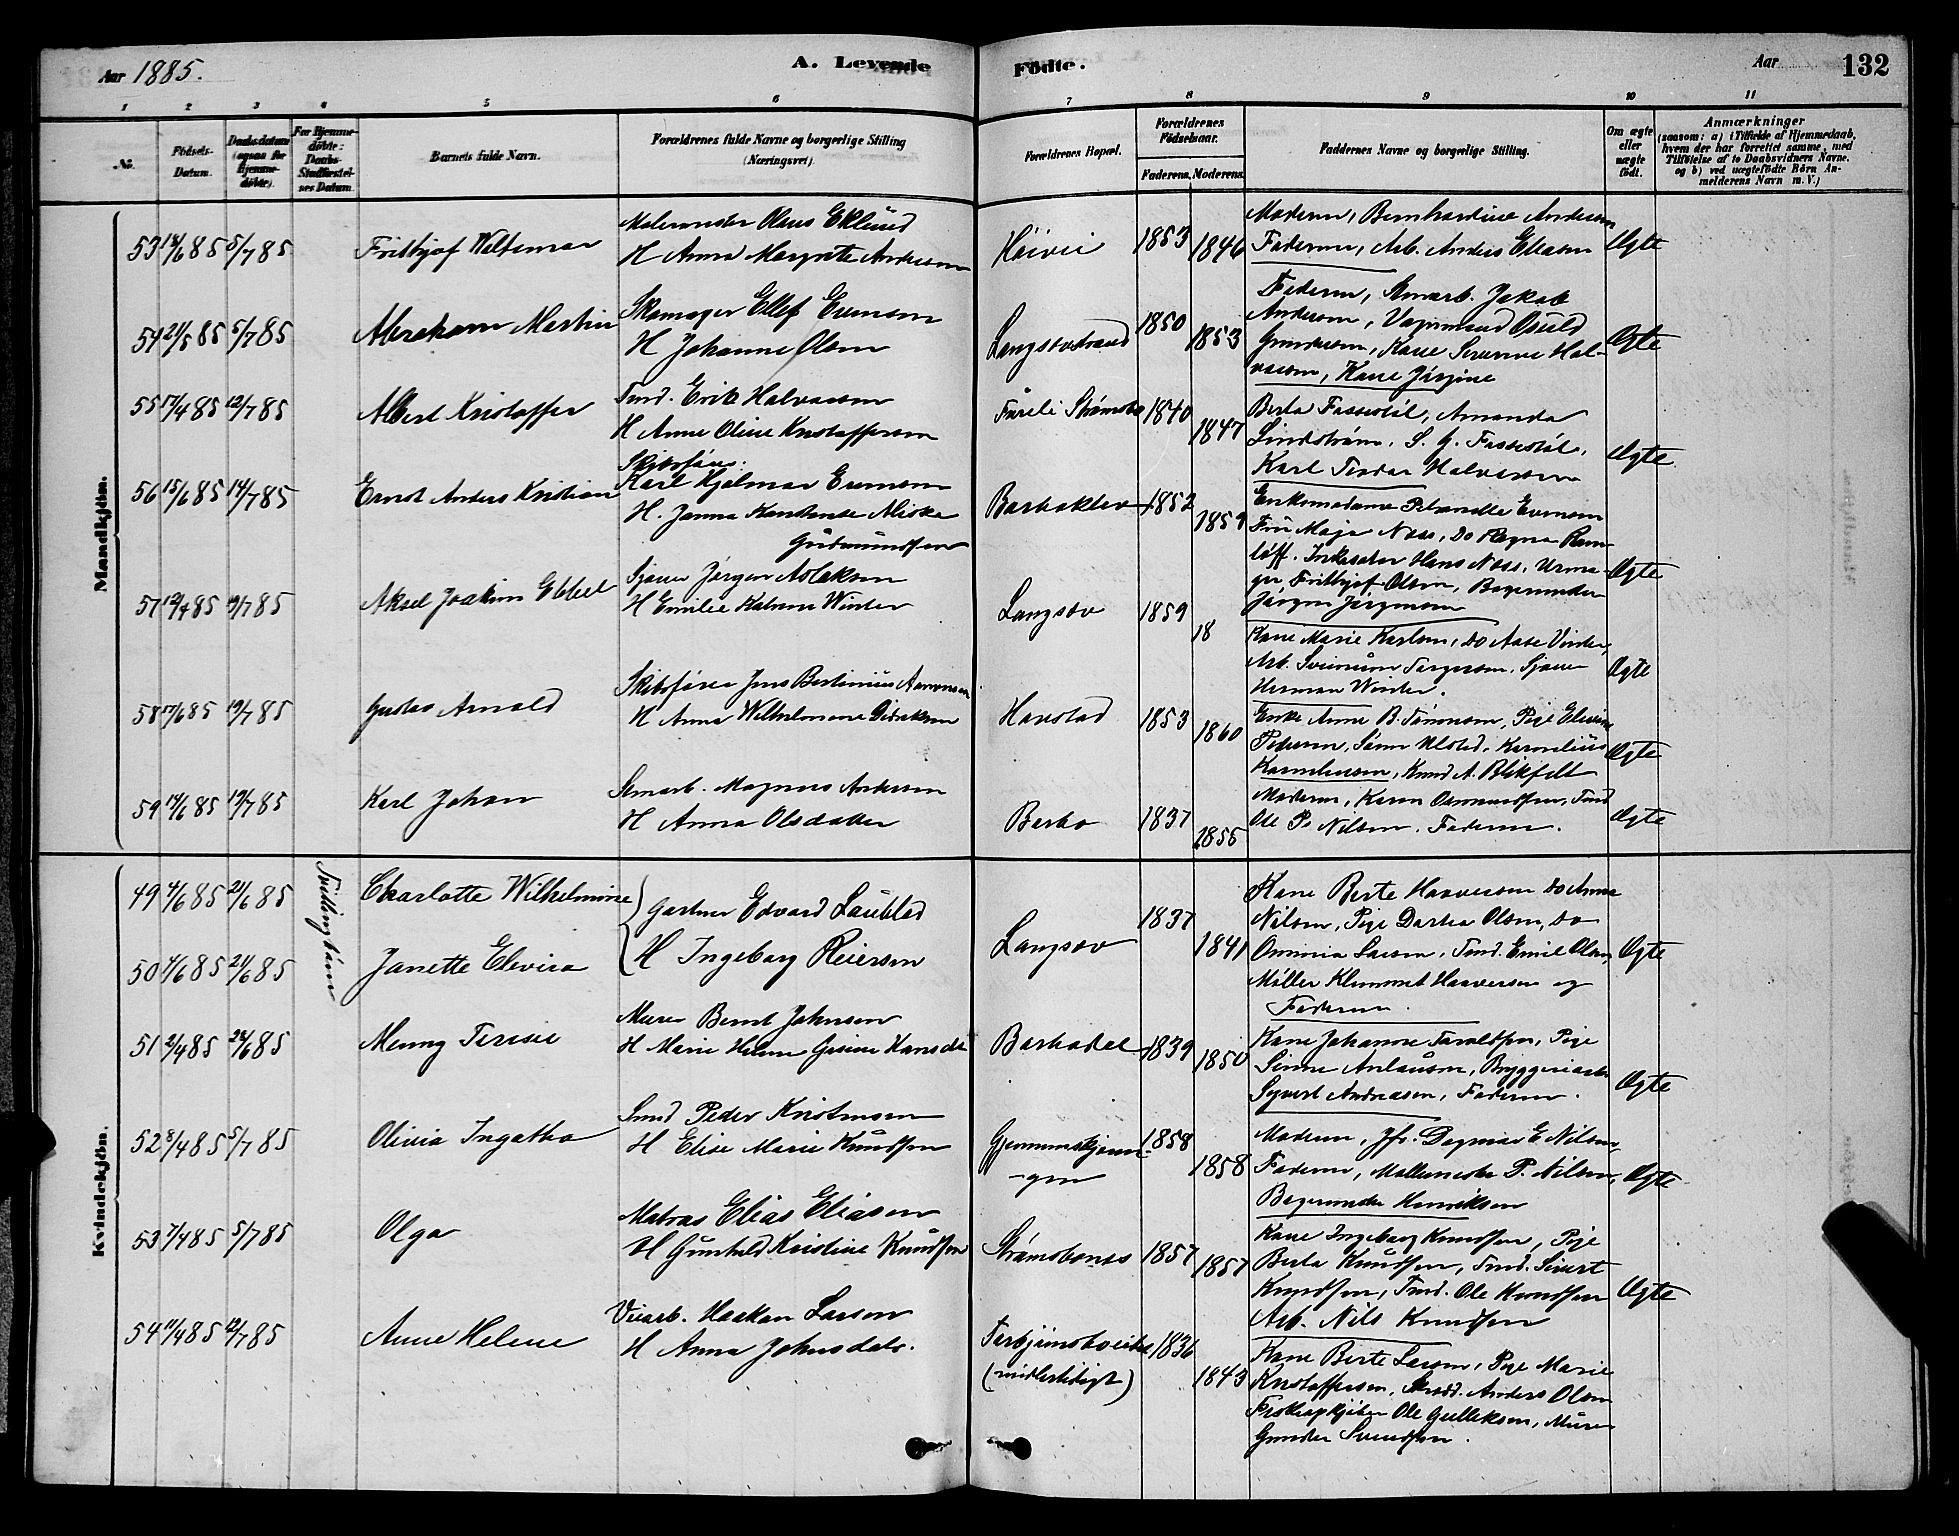 Aar 1885.
A. Levende Födte.
Aar
132
1 2 3 4 5 6 7 8 9 10 11
No.
Födsels-Datum.
Daabsdatum (ogsaa for Hjemmedöbte).
For Hjemmedöbte: Daabs-Stadfæstelsens Datum.
Barnets fulde Navn.
Forældrenes fulde Navne og borgerlige Stilling (Næringsvei).
Forældrenes Bopæl.
Forældrenes Födselsaar.
Faderens. Moderens.
Faddernes Navne og borgerlige Stilling.
Om ægte eller uægte födt.
Anmærkninger
(saasom: a) i Tilfælde af Hjemmedaab, hvem der har forrettet samme, med Tilföielse af to Daabsvidners Navne, og b) ved uægtefödte Börn Anmelderens Navn m. V.)
Mandkjön.
53 14/6 85 5/7 85 Fritthjof Waldemar
Malermester Olaus Eklund
H Anna Margrete Andersen
Höivei 1853 1846
Moderen, Bernhardine Andersen
Faderen, Arb. Anders Eliasen
Ægte
54 21/5 85 5/7 85 Abraham Martin
Skomager Ellef Evensen
H Johanne Olsen
Langsævstrand 1850 1853
Faderen, Smarb. Jakob
Andersen, Vognmand Osuld
Gundersen, Kone Severine Hal-
vorsen, Kone Jörgine
Ægte
55 17/4 85 12/7 85 Albert Kristoffer
Tmd. Erik Halvorsen
H Anne Oline Kristoffersen
Fureli Strømsbo 1840 1847
Berta Fassestöl, Amanda
Lindström, S. G. Fassestöl,
Karl Teodor Halvorsen
Ægte
56 15/6 85 14/7 85 Ernst Anders Kristian
Skibsförer
Karl Hjalmar Evensen
H. Janna Konstance Aliska
Gudmundsen
Barboklev 1852 1859
Enkemadame Petrandte Evensen
Frü Maja Næss, Do Ragna Ram-
löff. Inkassator Hans Næss, Urma-
ger Frithjof Olsen, Bagersvender
Jörgen Jörgensen
Ægte
57 12/4 85 19/7 85 Aksel Joakim Ebbel
Sjöm Jörgen Aslaksen
H Emilie Katrine Winter
Langsæv 1859 18
Kone Marie Karlsen, Do Aase Vinter,
Arb. Sveinüm Torgersen, Sjöm
Herman Winter.
Ægte
58 17/6 85 19/7 85 Gustav Arnold
Skibsförer Jens Bertinius Aamonsen
H Anna Wilhelmine Didriksen
Havstad 1853 1860
Enke Anne B. Tönnesen, Pige Elevine
Pedersen, Sömn Ulsted, Kornelius
Korneliussen, Knud A. Blikfelt
Ægte
59 14/6 85 19/7 85 Karl Johan
Smarb. Magnus Andersen
H Anna Olsdatter
Barbo 1837 1855
Moderen, Karen Osmundsen, Tmd
Ole P. Nilsen. Faderen.
Ægte
Kvindekjön.
Tvillingbörn
49 4/6 85 21/6 85 Charlotte Wilhelmine
50 4/6 85 21/6 85 Janette Elevira
Gartner Edvard Laublad
H Ingeborg Reiersen
Langsæv 1837 1841
Kone Berte Haaversen Do Anna
Nilsen, Pige Dortea Olsen, Do
Ommia Larsen, Tmd. Emil Olsen,
Möller Klemmet Haaversen og
Faderen.
Ægte
51 2/4 85 28/6 85 Menny Terese
Murer Bernt Johnsen
H Marie Helene Gusine Hansdtr
Barbodal 1839 1850
Kone Johanne Taraldsen, Pige
Sirine Anlausen, Bryggeriarb
Syvert Andreasen, Faderen.
Ægte
52 8/4 85 5/7 85 Olivia Ingatha
Smd Peder Kristensen
H Elise Marie Knüdsen
Gjennemskjærin-
-gen 1858 1858
Moderen, Jfr. Dagmar E Nilsen,
Faderen, Mallemester P. Nilsen,
Bagersvender Henriksen
Ægte
53 7/4 85 5/7 85 Olga
Matros Elias Eliasen
H Gunhild Kristine Knudsen
Strømsbones 1857 1857
Kone Ingeborg Knudsen, Pige
Berta Knudsen, Tmd. Sivert
Knudsen, Tmd. Ole Knudsen
Arb. Nils Knudsen
Ægte
54 11/4 85 12/7 85 Anne Helene
Veiarb. Haakon Larsen
H Anna Johnsdatr.
Torbjörnsbveiten
(midlertidigt) 1836 1843
Kone Berte Larsen, Pige Marie
Kristoffersen, Skrædd. Anders Olsen
Fiskeopkjöber Ole Gulleksen, Murer
Gunder Svendsen.